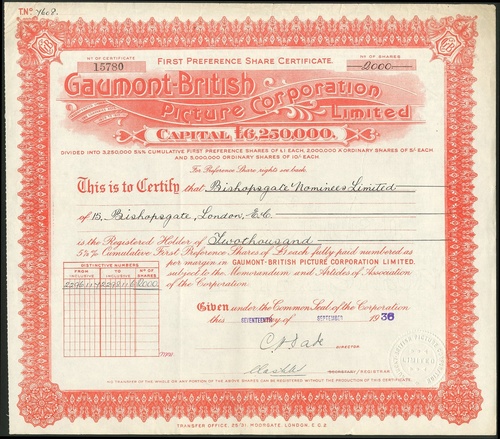 TNo 7608.
No OF CERTIFICATE
15780
FIRST PREFERENCE SHARE CERTIFICATE.
No OF SHARES
2000
Gaumont-British
Picture Corporation
Limited
CAPITAL £6,250,000.
DIVIDED INTO 3,250,000 5½% CUMULATIVE FIRST PREFERENCE SHARES OF £1 EACH, 2,000,000 A ORDINARY SHARES OF 5/- EACH
AND 5,000,000 ORDINARY SHARES OF 10/- EACH.
For Preference Share rights see back.
This is to Certify that Bishopsgate Nominees Limited
of 15, Bishopsgate, London, E.C.
is the Registered Holder of Twothousand
5½% Cumulative First Preference Shares of £1 each fully paid numbered as
per margin in GAUMONT-BRITISH PICTURE CORPORATION LIMITED.
subject to the Memorandum and Articles of Association
of the Corporation.
DISTINCTIVE NUMBERS
FROM INCLUSIVE
TO INCLUSIVE
No OF SHARES
2000
Given under the Common Seal of the Corporation
this SEVENTEENTH day of SEPTEMBER 1936
DIRECTOR
SECRETARY / REGISTRAR
NO TRANSFER OF THE WHOLE OR ANY PORTION OF THE ABOVE SHARES CAN BE REGISTERED WITHOUT THE PRODUCTION OF THIS CERTIFICATE.
TRANSFER OFFICE, 25/31, MOORGATE, LONDON, E.C.2